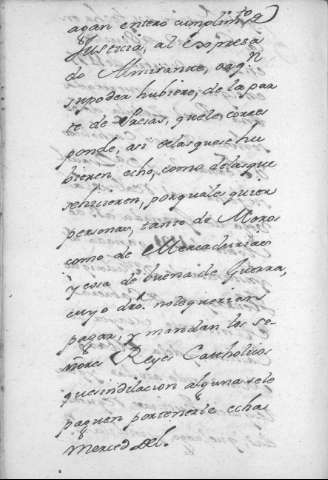 agan entero cumplimto
Justicia, al expresa
do Almirante, oaqn
supoder hubiere, de la par
te de Presas, quele corres
ponde, asi delasquese hu
bieren echo, como delasque
sehicieren, porqualesquier
personas, tanto de Moros
como de Mercadurias
y essa de buena de Guerra,
cuyo dro. nolequerian
pagar, y mandan los se
ñores Reyes Catholicos
quesindilacion alguna selo
paguen portenerle echa
merced del.